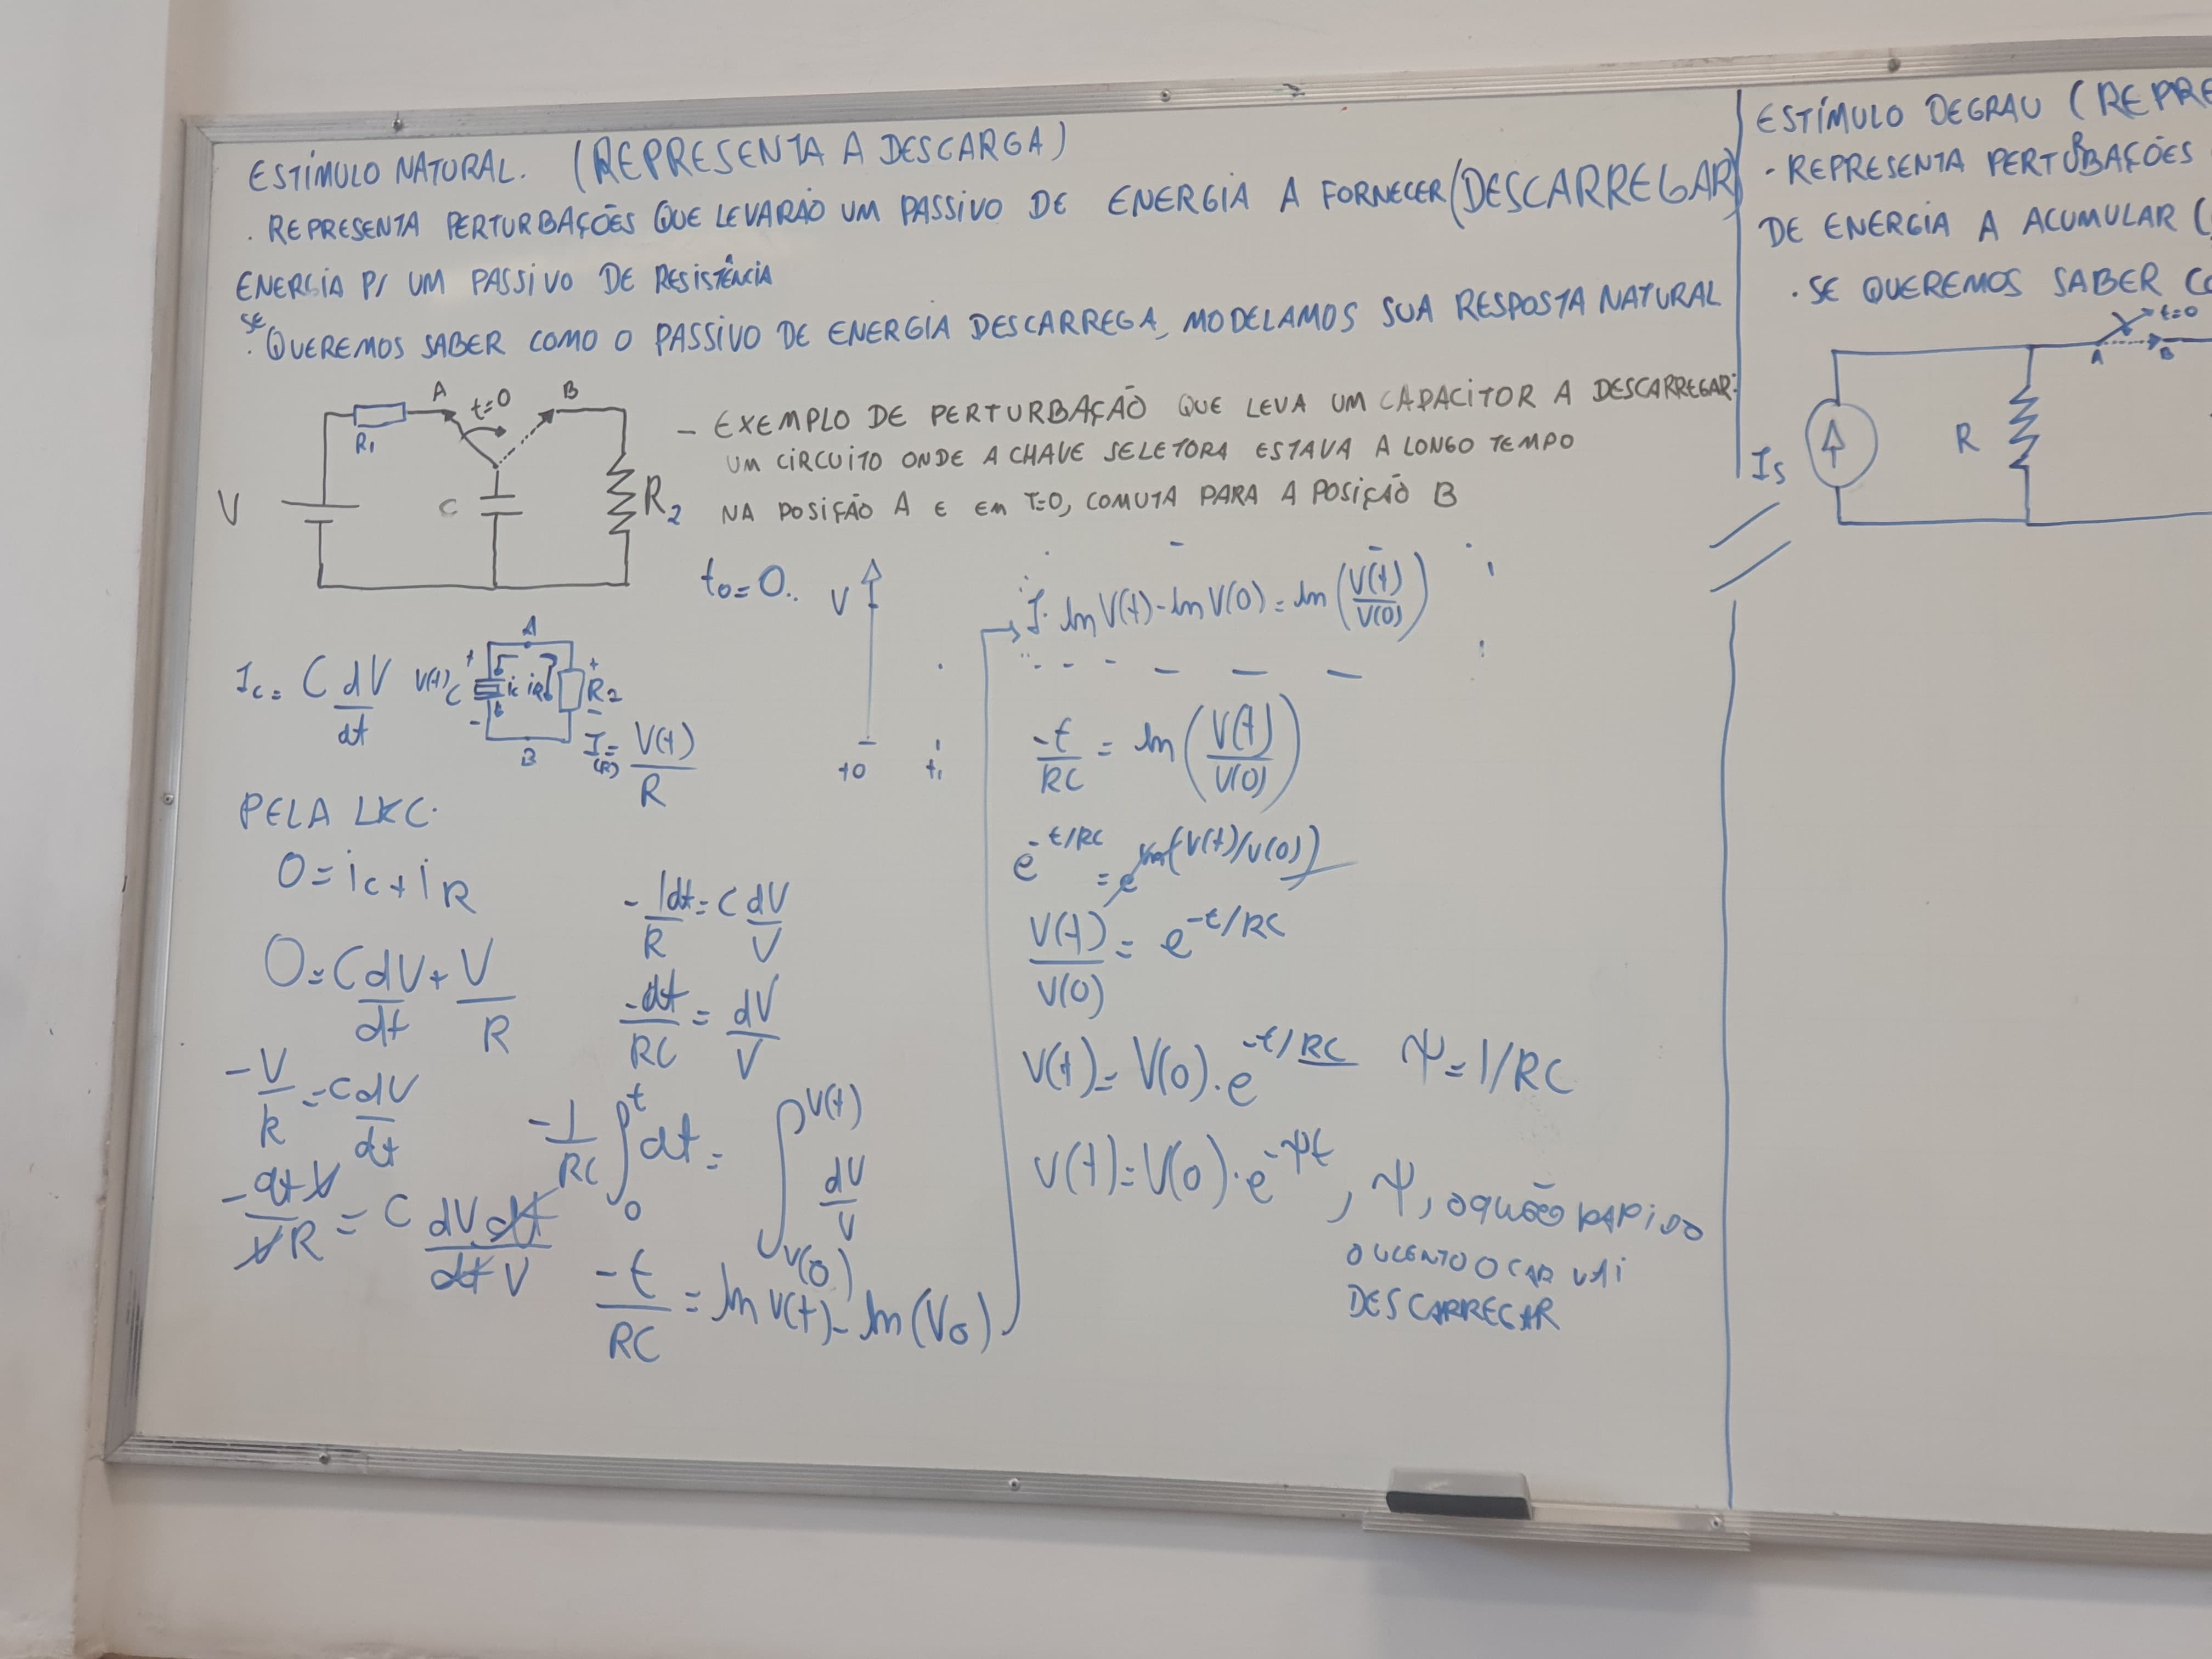 ESTÍMULO NATURAL. (REPRESENTA A DESCARGA)
. REPRESENTA PERTURBAÇÕES QUE LEVARÃO UM PASSIVO DE ENERGIA A FORNECER (DESCARREGAR)
ENERGIA P/ UM PASSIVO DE RESISTÊNCIA
SE
. QUEREMOS SABER COMO O PASSIVO DE ENERGIA DESCARREGA, MODELAMOS SUA RESPOSTA NATURAL
R1
A
t=0
B
V
C
R2
- EXEMPLO DE PERTURBAÇÃO QUE LEVA UM CAPACITOR A DESCARREGAR:
UM CIRCUITO ONDE A CHAVE SELETORA ESTAVA A LONGO TEMPO
NA POSIÇÃO A E EM T=0, COMUTA PARA A POSIÇÃO B
t0=0..
V
t0
t1
Ic = C dV/dt
V(t)
C
A
+
-
ic iR
+
R2
-
B
I(R) = V(t)/R
PELA LKC.
0 = ic + iR
0 = C dV/dt + V/R
-V/R = C dV/dt
-dt V/VR = C dV dt/dt V
-1dt/R = C dV/V
-dt/RC = dV/V
-1/RC ∫0^t dt = ∫V(0)^V(t) dV/V
-t/RC = ln V(t) - ln(V0)
ln V(t) - ln V(0) = ln (V(t)/V(0))
-t/RC = ln (V(t)/V(0))
e^-t/RC = e^ln(V(t)/V(0))
V(t)/V(0) = e^-t/RC
V(t) = V(0).e^-t/RC Ψ = 1/RC
V(t) = V(0).e^-Ψt, Ψ, o quão RAPIDO
OU LENTO O CAP VAI
DESCARREGAR
ESTÍMULO DEGRAU (REPRE
. REPRESENTA PERTURBAÇÕES
DE ENERGIA A ACUMULAR (
. SE QUEREMOS SABER CO
t=0
A
B
Is
R